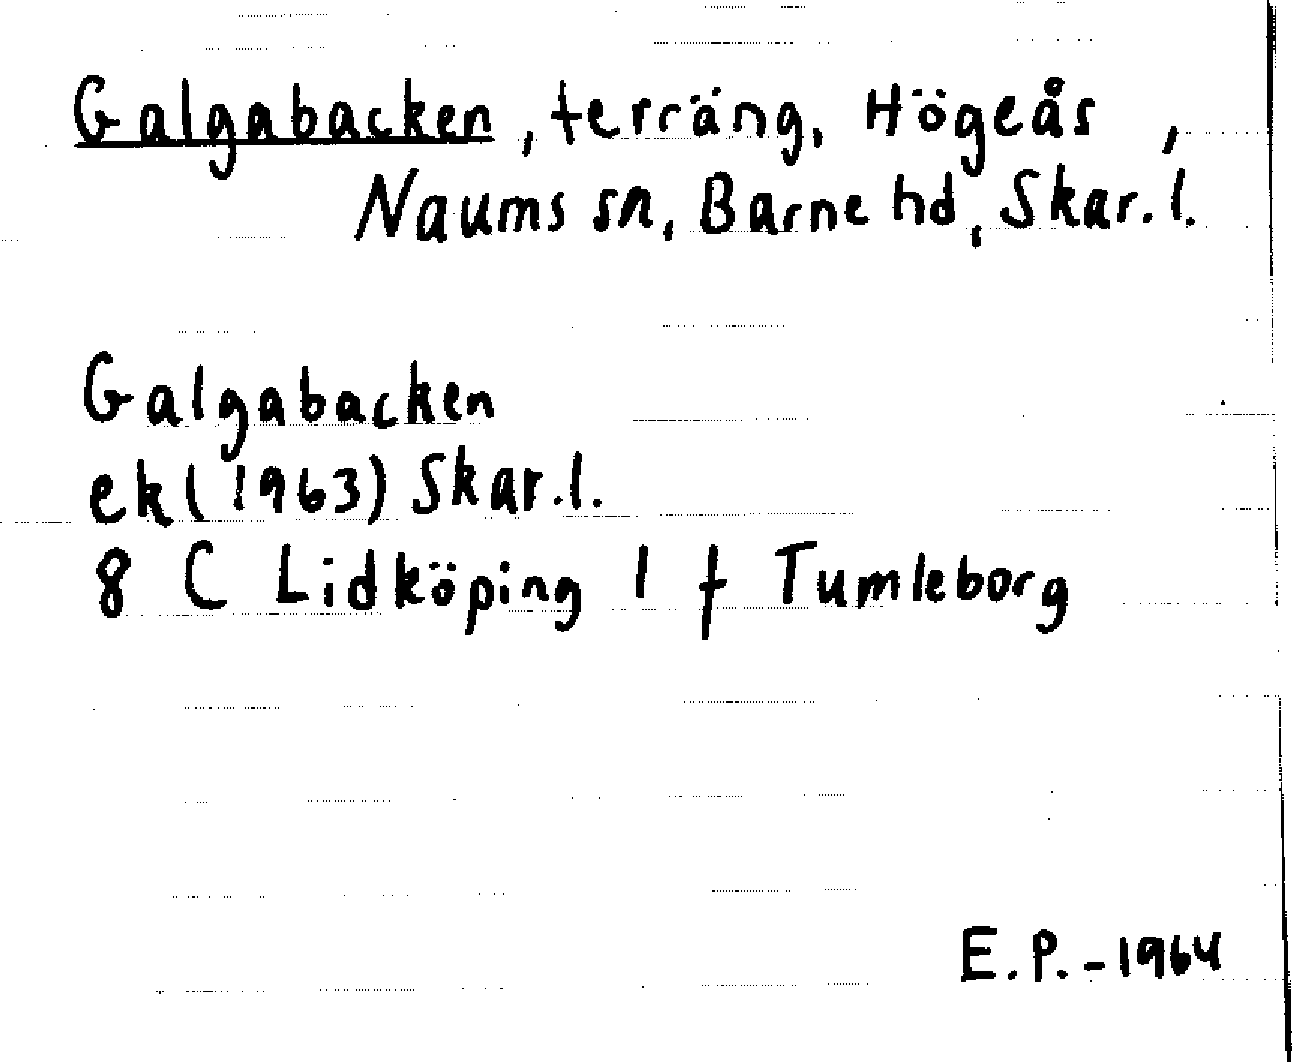 Galgabacken, terräng, Högeås,
Naums sn, Barne hd, Skar.l.
Galgabacken
ek (1963) Skar.l.
8 C Lidköping 1 f Tumleborg
E.P. - 1964